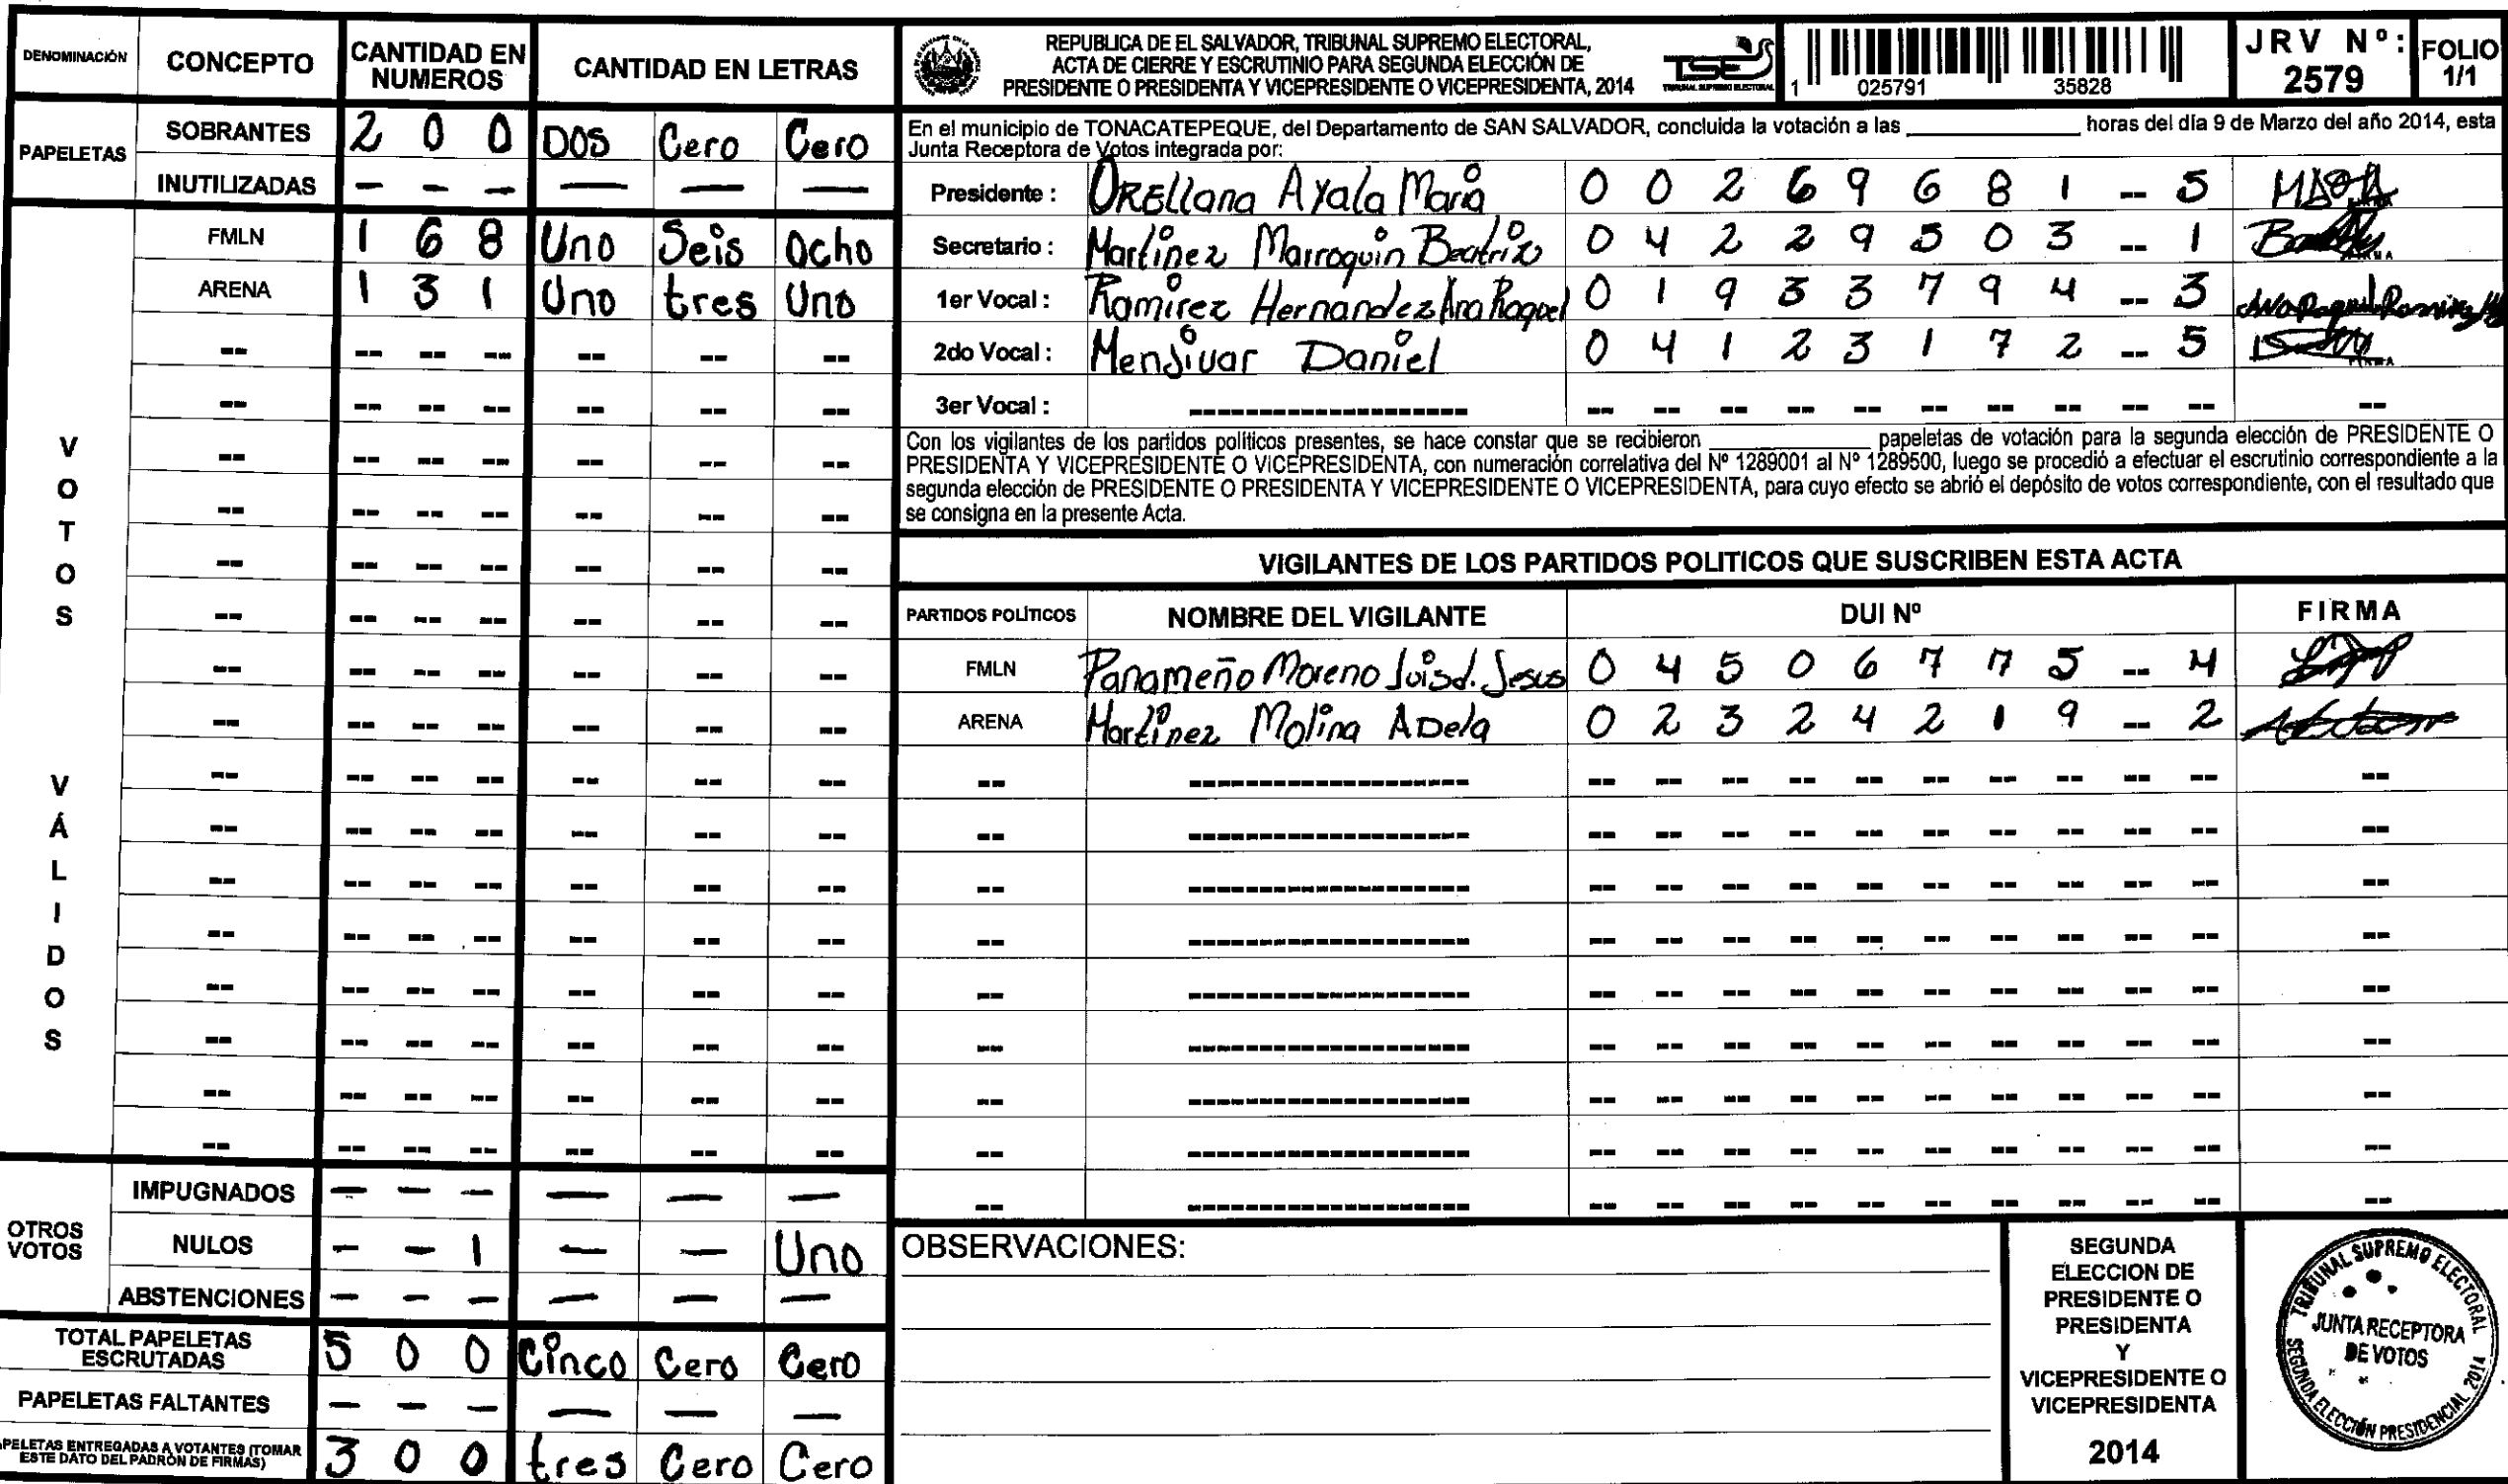 DENOMINACIÓN CONCEPTO CANTIDAD EN NUMEROS CANTIDAD EN LETRAS
PAPELETAS
SOBRANTES 2 0 0 DOS Cero Cero
INUTILIZADAS - - - - - -
VOTOS VÁLIDOS
FMLN 1 6 8 Uno Seis Ocho
ARENA 1 3 1 Uno tres Uno
OTROS VOTOS
IMPUGNADOS - - - - - -
NULOS - - 1 - - Uno
ABSTENCIONES - - - - - -
TOTAL PAPELETAS ESCRUTADAS 5 0 0 Cinco Cero Cero
PAPELETAS FALTANTES - - - - - -
PELETAS ENTREGADAS A VOTANTES (TOMAR
ESTE DATO DEL PADRÓN DE FIRMAS) 3 0 0 tres Cero Cero
REPUBLICA DE EL SALVADOR, TRIBUNAL SUPREMO ELECTORAL,
ACTA DE CIERRE Y ESCRUTINIO PARA SEGUNDA ELECCIÓN DE
PRESIDENTE O PRESIDENTA Y VICEPRESIDENTE O VICEPRESIDENTA, 2014
TSE
TRIBUNAL SUPREMO ELECTORAL
1 025791 35828
JRV Nº: 2579
FOLIO 1/1
En el municipio de TONACATEPEQUE, del Departamento de SAN SALVADOR, concluida la votación a las ____________ horas del día 9 de Marzo del año 2014, esta
Junta Receptora de Votos integrada por:
Presidente : ORELLana Ayala Maria 0 0 2 6 9 6 8 1 -- 5
Secretario : Martinez Marroquin Beatriz 0 4 2 2 9 5 0 3 -- 1
1er Vocal : Ramirez Hernandez Ana Raquel 0 1 9 3 3 7 9 4 -- 3
2do Vocal : Menjivar Daniel 0 4 1 2 3 1 7 2 -- 5
3er Vocal :
Con los vigilantes de los partidos políticos presentes, se hace constar que se recibieron ____________ papeletas de votación para la segunda elección de PRESIDENTE O
PRESIDENTA Y VICEPRESIDENTE O VICEPRESIDENTA, con numeración correlativa del Nº 1289001 al Nº 1289500, luego se procedió a efectuar el escrutinio correspondiente a la
segunda elección de PRESIDENTE O PRESIDENTA Y VICEPRESIDENTE O VICEPRESIDENTA, para cuyo efecto se abrió el depósito de votos correspondiente, con el resultado que
se consigna en la presente Acta.
VIGILANTES DE LOS PARTIDOS POLITICOS QUE SUSCRIBEN ESTA ACTA
PARTIDOS POLÍTICOS NOMBRE DEL VIGILANTE DUI Nº FIRMA
FMLN Panameño Moreno Luis d. Jesus 0 4 5 0 6 7 7 5 -- 4
ARENA Martinez Molina ADela 0 2 3 2 4 2 1 9 -- 2
OBSERVACIONES:
SEGUNDA
ELECCION DE
PRESIDENTE O
PRESIDENTA
Y
VICEPRESIDENTE O
VICEPRESIDENTA
2014
TRIBUNAL SUPREMO ELECTORAL
JUNTA RECEPTORA
DE VOTOS
SEGUNDA ELECCIÓN PRESIDENCIAL 2014